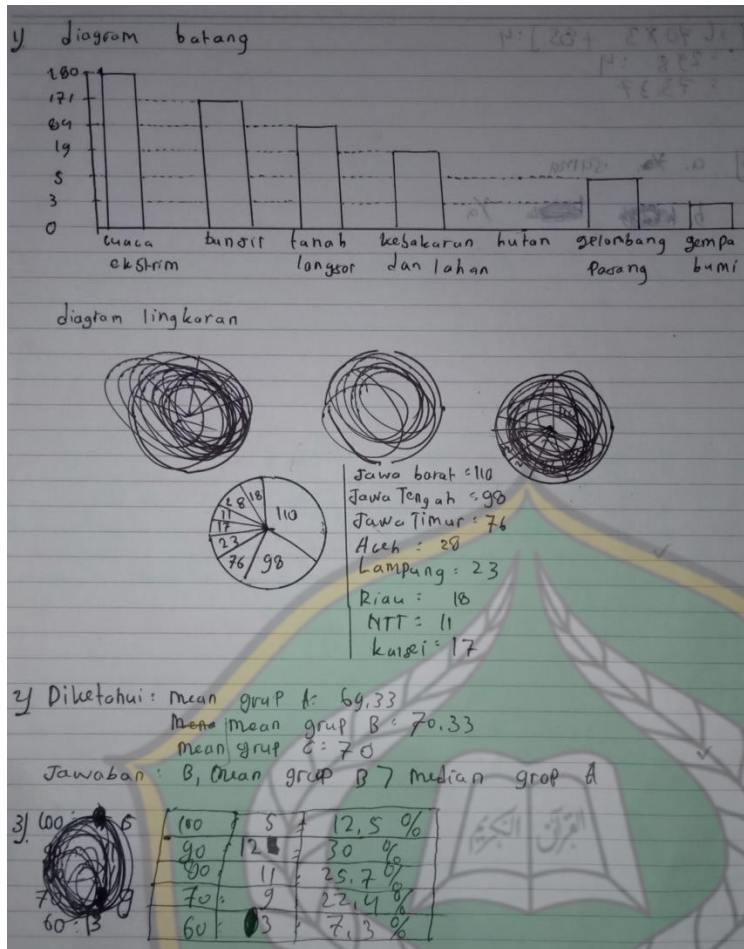 1) diagram batang
180
171
84
19
5
3
0
cuaca ekstrim
banjir
tanah longsor
kebakaran hutan dan lahan
gelombang pasang
gempa bumi
diagram lingkaran
110
98
76
23
17
11
28
18
Jawa barat = 110
Jawa Tengah = 98
Jawa Timur = 76
Aceh = 28
Lampung = 23
Riau = 18
NTT = 11
kalsel = 17
2) Diketahui : mean grup A: 69,33
mean grup B = 70.33
mean grup C = 70
Jawaban : B, mean grup B > median grop A
3) 100 : 5
70 : 9
60 : 3
100 : 5 = 12,5 %
90 : 12 = 30 %
80 : 11 = 25,7 %
70 : 9 = 22,4 %
60 : 3 = 7,3 %
القرآن الكريم